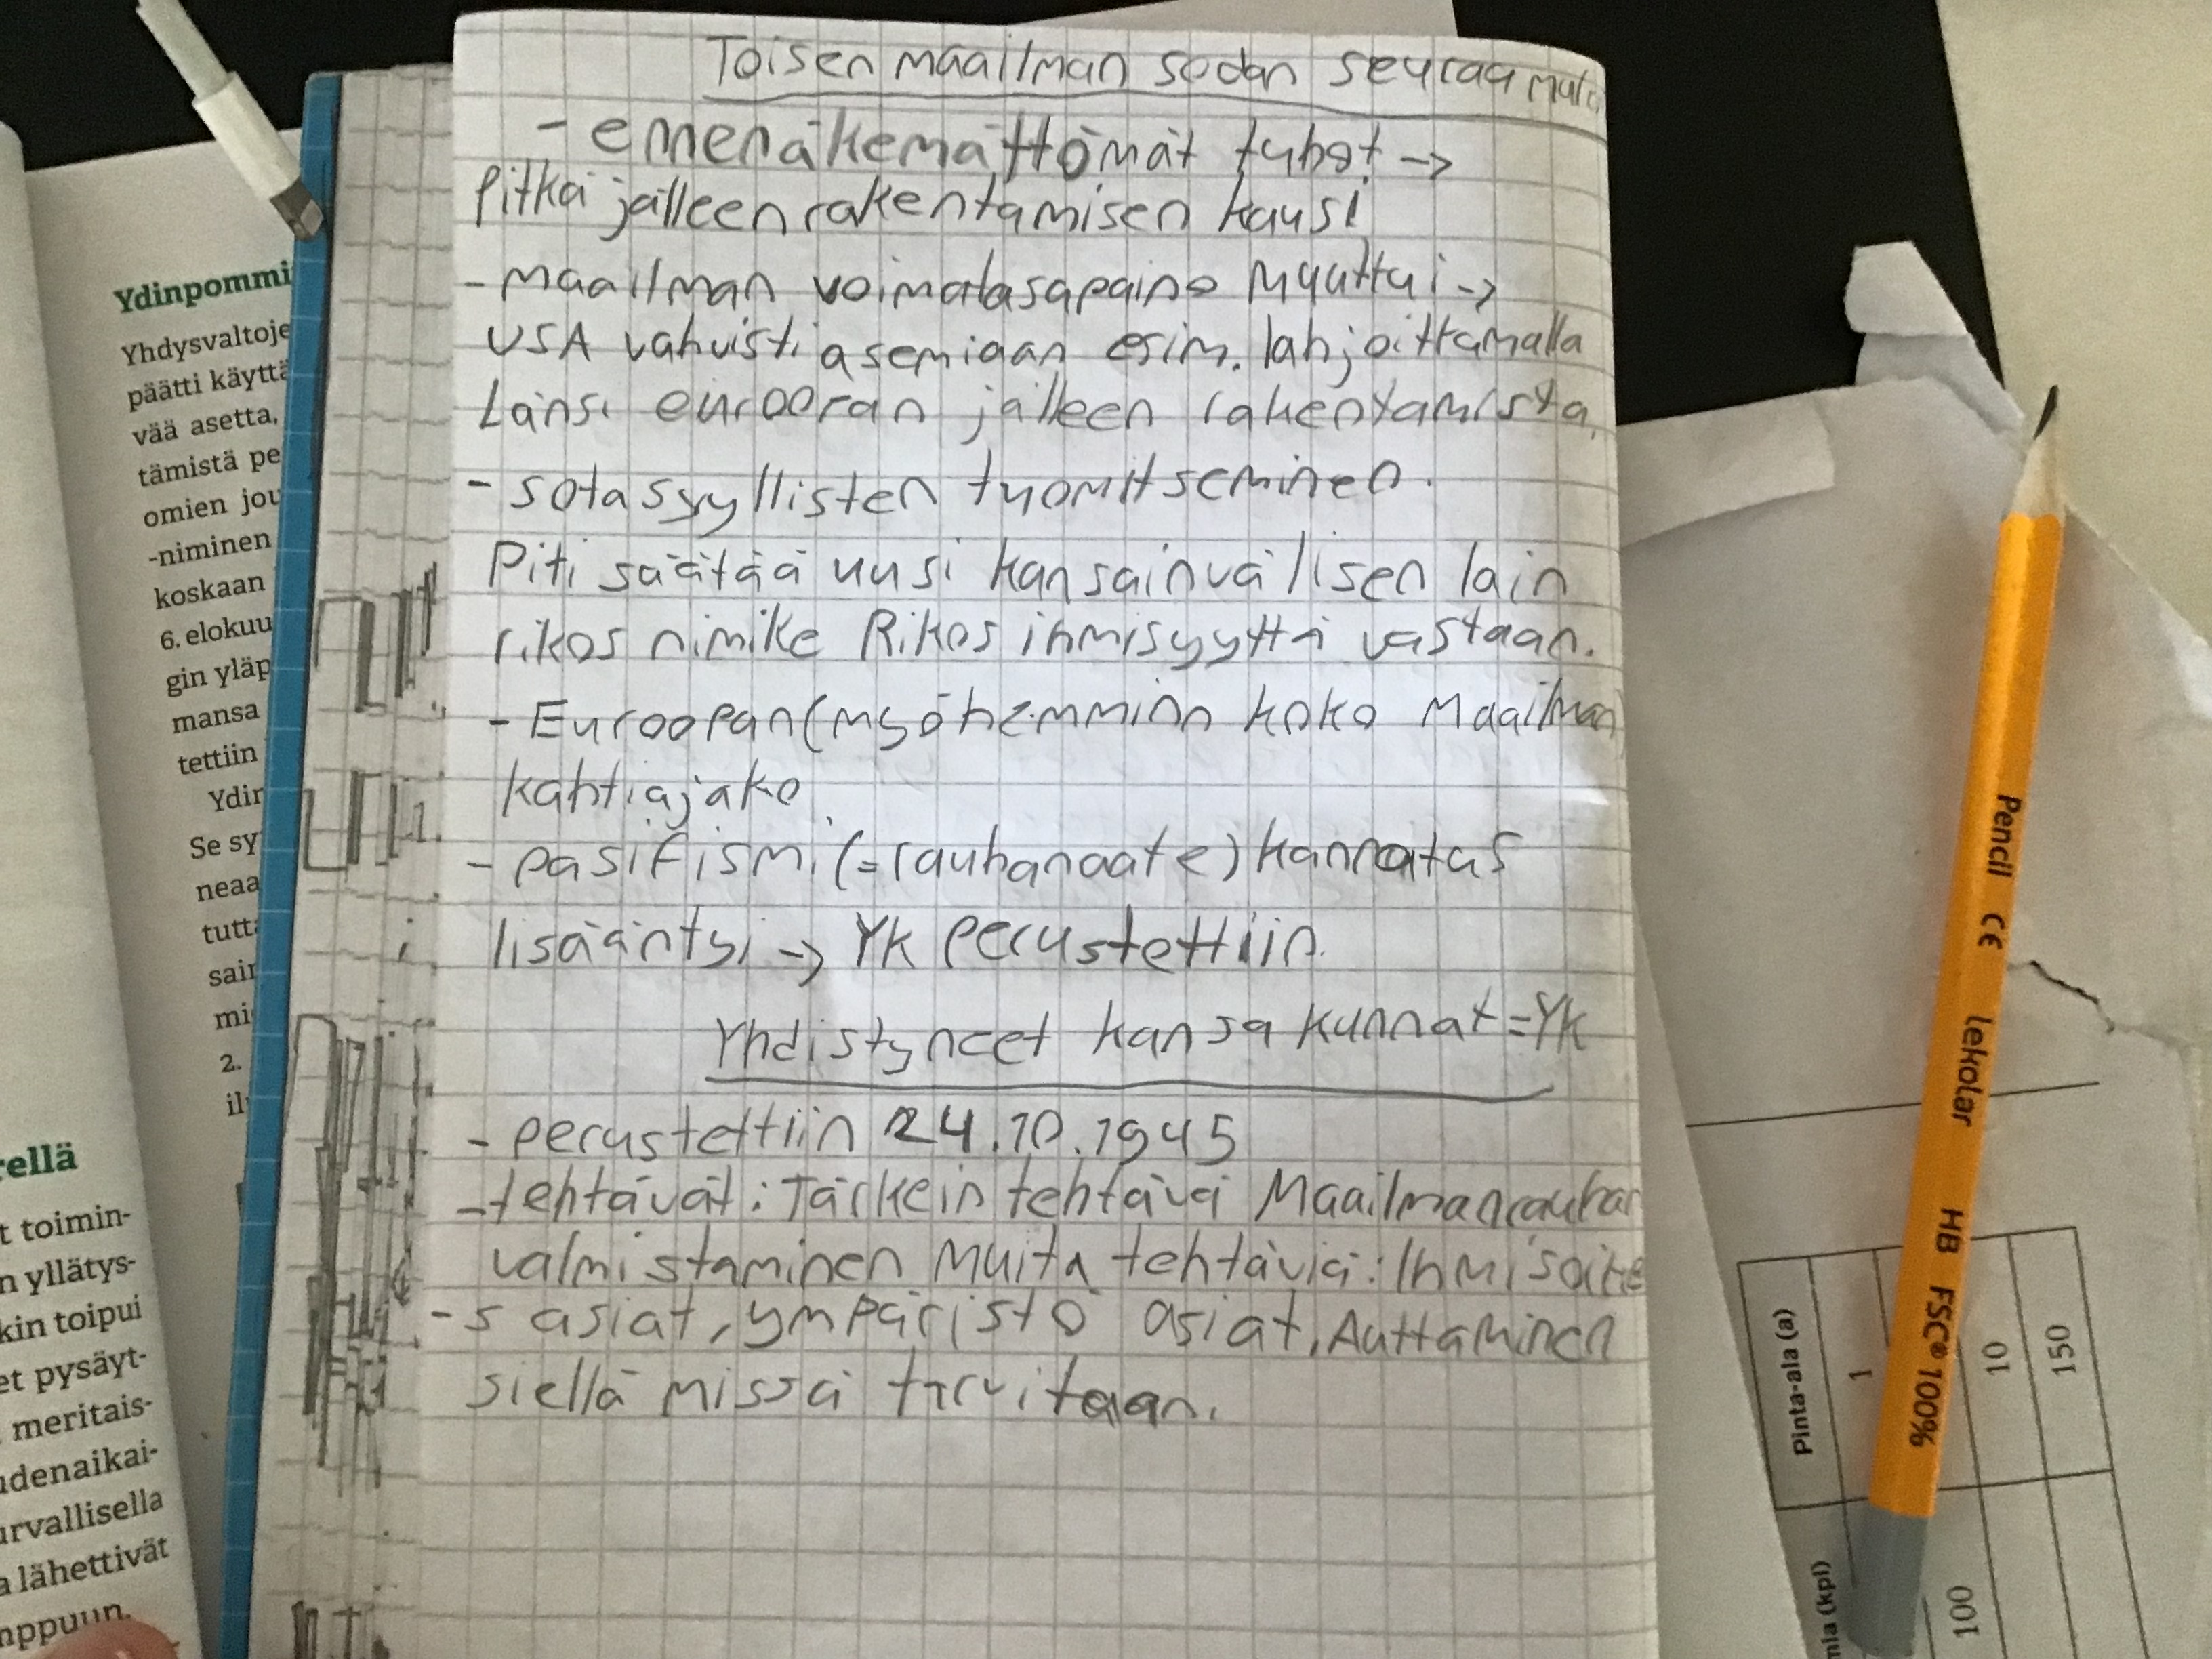 Toisen maailman sodan seuraamu
- ennenäkemättömät tuhot ->
Pitkä jälleenrakentamisen kausi
- maailman voimatasapaino Muuttui ->
USA vahvisti asemiaan esim. lahjoittamalla
Länsi euroopan jälleen rakentamista.
- sotasyyllisten tuomitseminen.
Piti säätää uusi kansainvälisen lain
rikos nimike Rikos ihmisyyttä vastaan.
- Euroopan (myöhemminn koko Maailman)
kahtiajako
- pasifismi (=rauhanaate) kannatus
lisääntyi -> YK Perustettiin.
Yhdistyneet kansa kunnat = Yk
- perustettiin 24.10.1945
- tehtävät: Tärkein tehtävä Maailmanrauhan
valmistaminen Muita tehtäviä: Ihmisoike
- s asiat, ympäristö asiat, Auttaminen
siellä missä tarvitaan.
Ydinpommi
Yhdysvaltoje
päätti käyttä
vää asetta,
tämistä pe
omien jou
-niminen
koskaan
6. elokuu
gin yläp
mansa
tettiin
Ydin
Se sy
neaa
tutta
sain
mi
2.
il
rellä
t toimin-
n yllätys-
kin toipui
et pysäyt-
meritais-
udenaikai-
urvallisella
a lähettivät
mppuun.
Pencil CE lekolar HB FSC® 100%
Pinta-ala (a)
1
10
150
mia (kpl)
100